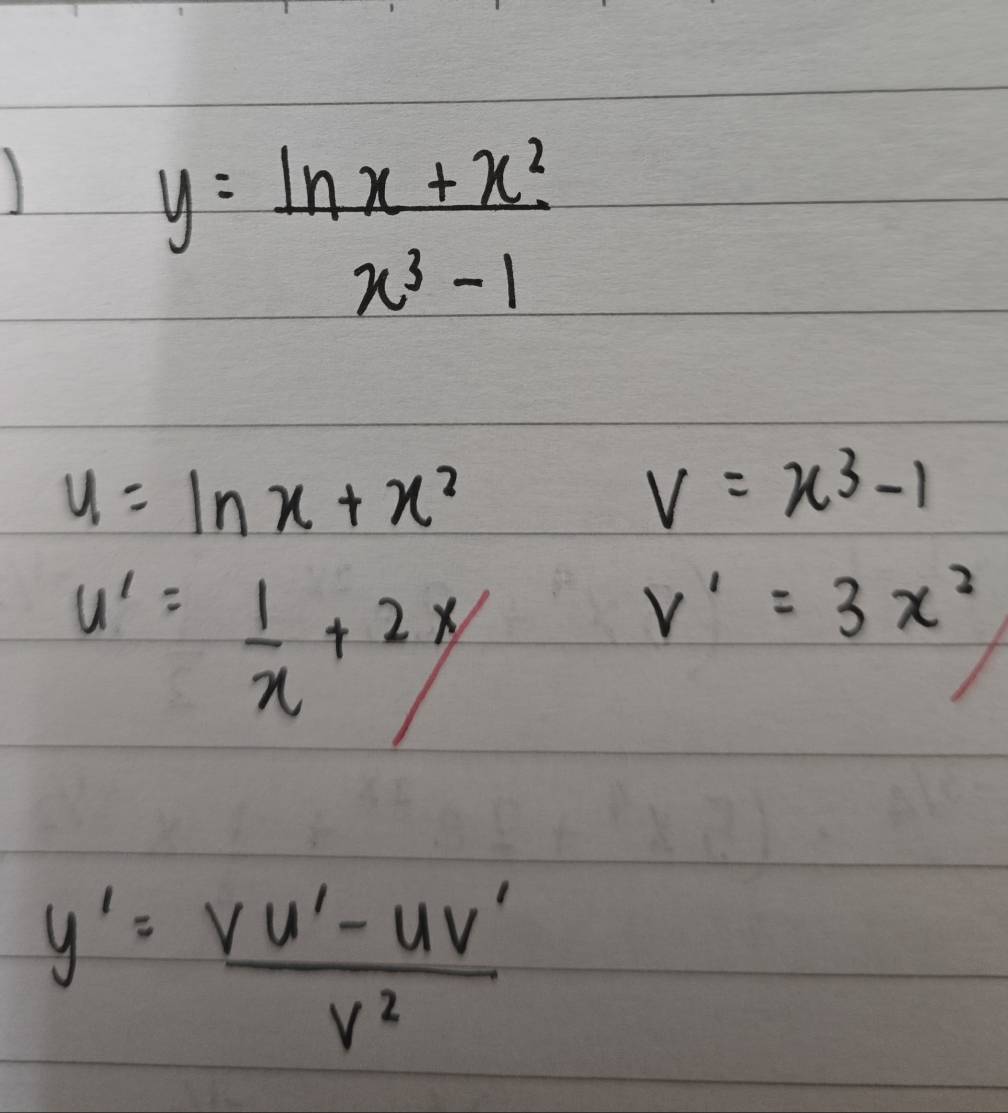 ) y = (ln x + x²) / (x³ - 1)
u = ln x + x² v = x³ - 1
u' = 1/x + 2x v' = 3x²
y' = (vu' - uv') / v²